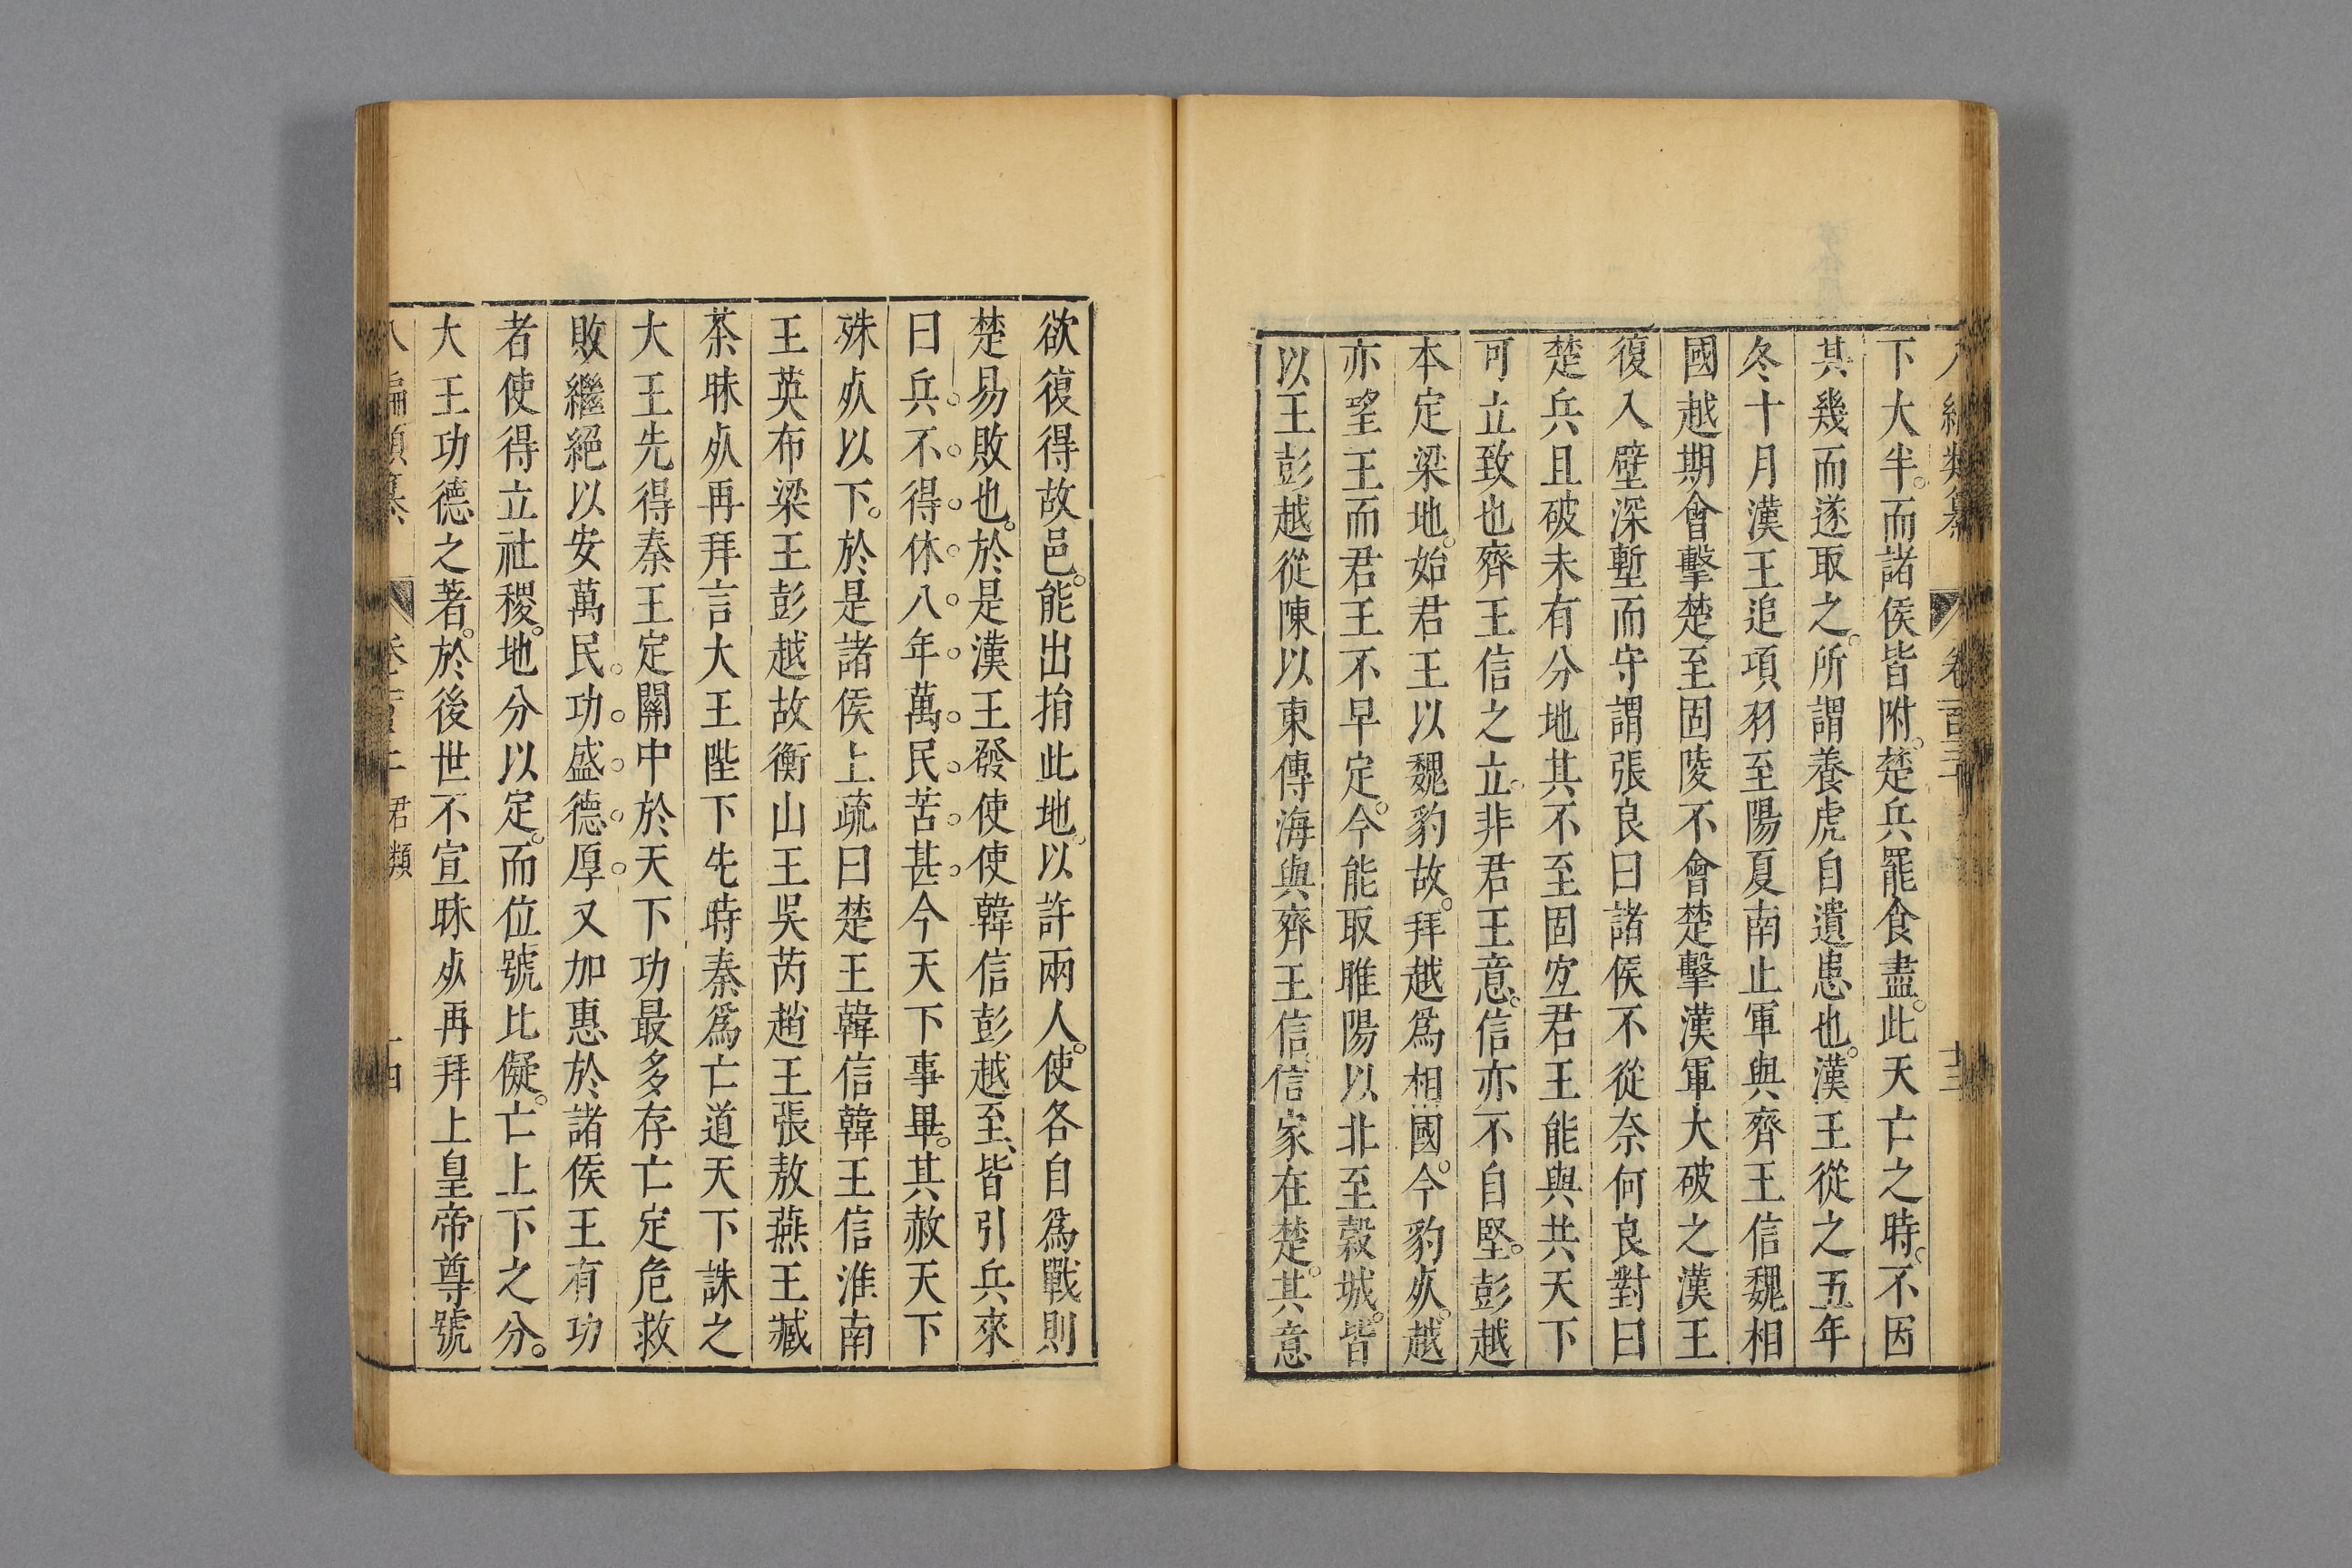 八編類纂 卷一百三十 十三
下大半。而諸侯皆附。楚兵罷食盡。此天亡之時。不因
其幾而遂取之。所謂養虎自遺患也。漢王從之五年
冬十月漢王追項羽至陽夏南止軍與齊王信魏相
國越期會擊楚至固陵不會楚擊漢軍大破之漢王
復入壁深塹而守謂張良曰諸侯不從奈何良對曰
楚兵且破未有分地其不至固宜君王能與共天下
可立致也齊王信之立非君王意。信亦不自堅。彭越
本定梁地。始君王以魏豹故。拜越爲相國。今豹死。越
亦望王而君王不早定。今能取睢陽以北至穀城。皆
以王彭越從陳以東傳海與齊王信信家在楚。其意
欲復得故邑。能出捐此地。以許兩人。使各自爲戰則
楚易敗也。於是漢王發使使韓信彭越至、皆引兵來
曰兵不得休八年萬民苦甚今天下事畢。其赦天下
殊死以下。於是諸侯上疏曰楚王韓信韓王信淮南
王英布梁王彭越故衡山王吳芮趙王張敖燕王臧
荼昧死再拜言大王陛下先時秦爲亡道天下誅之
大王先得秦王定關中於天下功最多存亡定危救
敗繼絕以安萬民。功盛德厚又加惠於諸侯王有功
者使得立社稷。地分以定。而位號比儗。亡上下之分。
大王功德之著。於後世不宣昧死再拜上皇帝尊號
八編類纂 君類